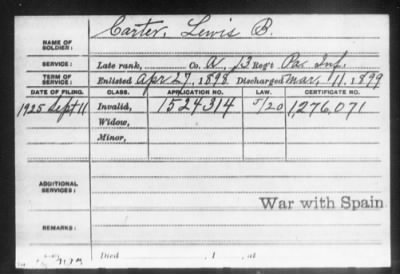 Carter, Lewis B.
NAME OF SOLDIER:
SERVICE: Late rank, Co. A, 13 Reg't Pa. Inf.
TERM OF SERVICE: Enlisted Apr 27, 1898 Discharged Mar. 11, 1899
DATE OF FILING. CLASS. APPLICATION NO. LAW. CERTIFICATE NO.
1925 Sept 11 Invalid, 1524314 5/20 1,276,071
Widow,
Minor,
ADDITIONAL SERVICES:
War with Spain
REMARKS:
Died , 1 , at